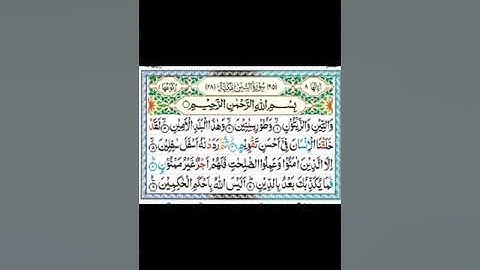 اٰيَاتُهَا ٨ (٩٥) سُوْرَةُ التِّيْنِ مَكِّيَّةٌ (٢٨) رُكُوْعُهَا ١
بِسْمِ اللّٰهِ الرَّحْمٰنِ الرَّحِيْمِ
وَالتِّيْنِ وَالزَّيْتُوْنِ ۙ وَطُوْرِ سِيْنِيْنَ ۙ وَهٰذَا الْبَلَدِ الْاَمِيْنِ ۙ لَقَدْ
خَلَقْنَا الْاِنْسَانَ فِيْۤ اَحْسَنِ تَقْوِيْمٍ ۫ ثُمَّ رَدَدْنٰهُ اَسْفَلَ سٰفِلِيْنَ ۙ
اِلَّا الَّذِيْنَ اٰمَنُوْا وَعَمِلُوا الصّٰلِحٰتِ فَلَهُمْ اَجْرٌ غَيْرُ مَمْنُوْنٍ ؕ
فَمَا يُكَذِّبُكَ بَعْدُ بِالدِّيْنِ ؕ اَلَيْسَ اللّٰهُ بِاَحْكَمِ الْحٰكِمِيْنَ